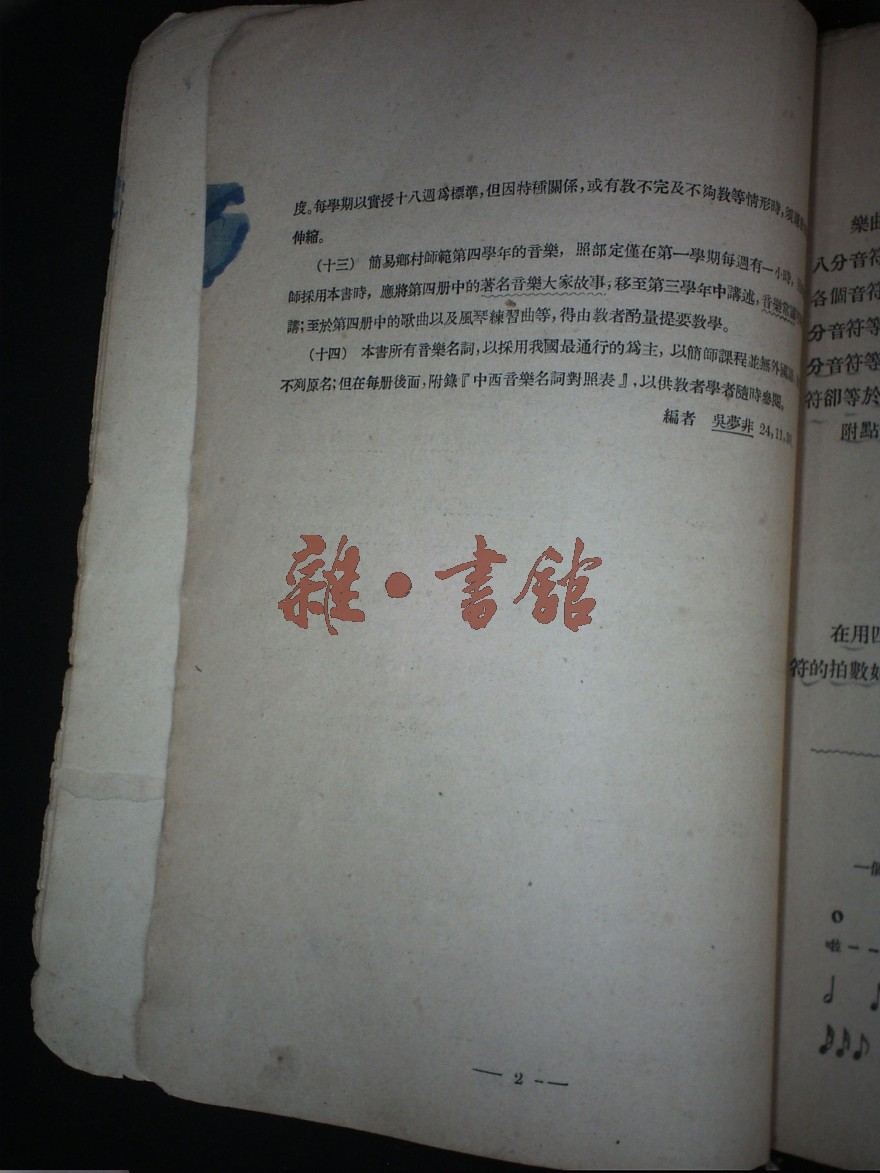 度。每學期以實授十八週爲標準，但因特種關係，或有教不完及不夠教等情形時，須
伸縮。
(十三) 簡易鄉村師範第四學年的音樂，照部定僅在第一學期每週有一小時，
師採用本書時，應將第四册中的著名音樂大家故事，移至第三學年中講述，音樂常識
講；至於第四册中的歌曲以及風琴練習曲等，得由教者酌量提要教學。
(十四) 本書所有音樂名詞，以採用我國最通行的爲主，以簡師課程並無外國
不列原名；但在每册後面，附錄『中西音樂名詞對照表』，以供教者學者隨時參閱。
編者 吳夢非 24,11,
雜·書館
— 2 —
樂曲
八分音符
各個音符
分音符等
分音符等
符卻等於
附點
在用四
符的拍數如
一個